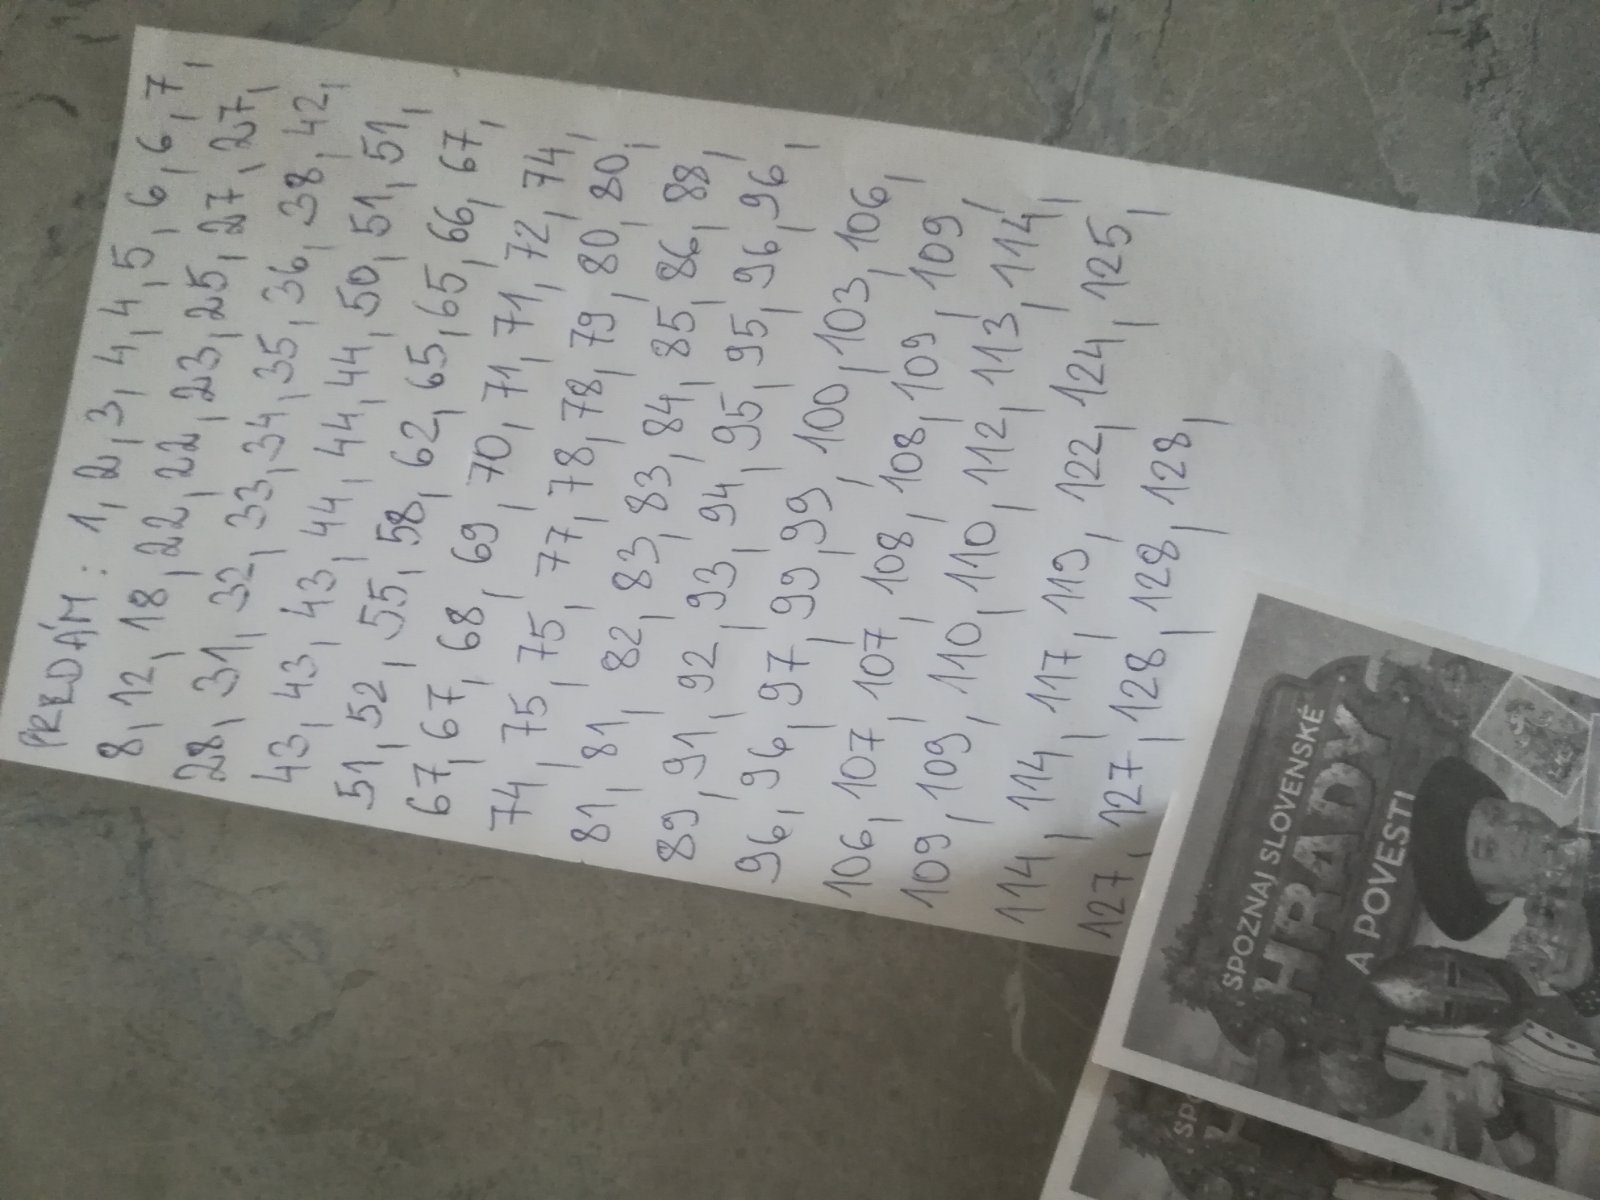 PREDÁM: 1, 2, 3, 4, 4, 5, 6, 6, 7,
8, 12, 18, 22, 22, 22, 23, 25, 27, 27,
28, 31, 32, 33, 34, 35, 36, 38, 42,
43, 43, 43, 44, 44, 44, 44, 50, 51, 51,
51, 52, 55, 58, 62, 65, 65, 65, 66, 67,
67, 67, 68, 69, 70, 71, 71, 71, 72, 74,
74, 75, 75, 75, 77, 77, 78, 78, 78, 79, 80, 80, 80,
81, 81, 81, 82, 83, 83, 83, 84, 85, 86, 86, 88,
89, 91, 92, 93, 94, 95, 95, 95, 96, 96, 96,
96, 96, 97, 99, 99, 99, 100, 103, 106,
106, 107, 107, 107, 108, 108, 108, 109, 109,
109, 109, 110, 110, 110, 112, 113, 114,
114, 114, 117, 119, 122, 124, 125,
127, 127, 127, 128, 128, 128, 128,
SPOZNAJ SLOVENSKÉ
HRADY
A POVESTI